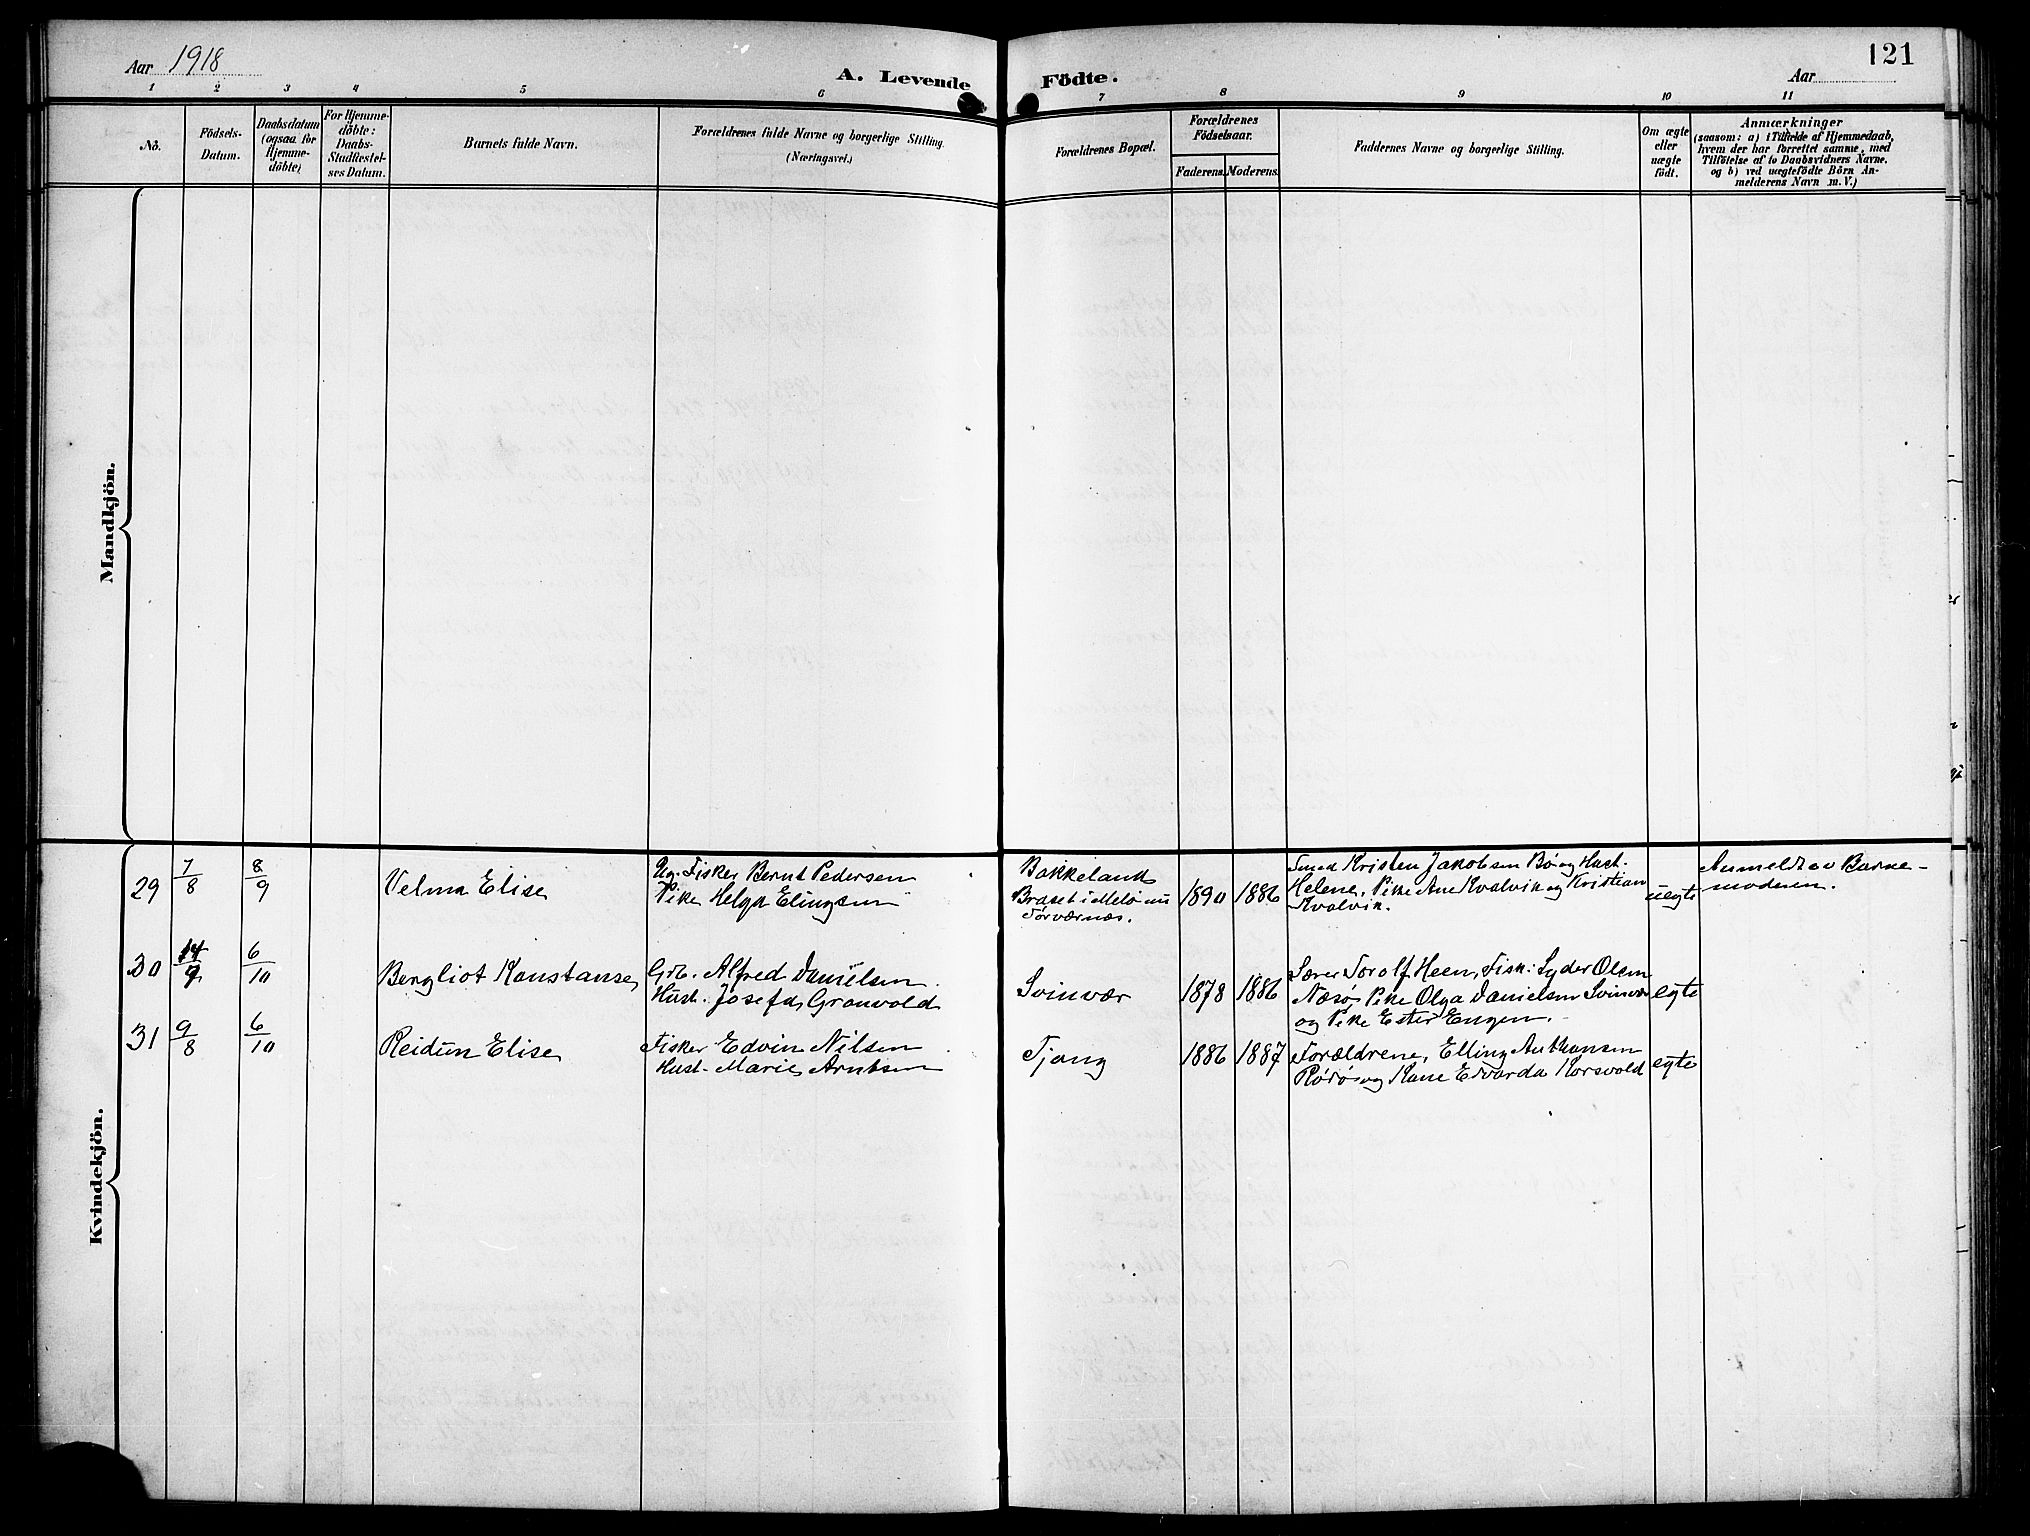 Aar 1918
A. Levende Födte.
121
Aar
1 2 3 4 5 6 7 8 9 10 11
No.
Födsels-
Datum.
Daabsdatum
(ogsaa for
Hjemme-
døbte)
For Hjemme-
døbte:
Daabs-
Stadfæstel-
ses Datum.
Barnets fulde Navn.
Forældrenes fulde Navne og borgerlige Stilling.
(Næringsvei.)
Forældrenes Bopæl.
Forældrenes
Födselsaar.
Faderens. Moderens.
Faddernes Navne og borgerlige Stilling.
Om ægte
eller
uægte
født.
Anmærkninger
(saasom: a) i Tilfælde af Hjemmedaab,
hvem der har forrettet samme, med
Tilföielse af to Daabsvidners Navne.
og b) ved uægtefödte Börn An-
melderens Navn m. V.)
Mandkjön.
Kvindekjön.
29 7/8 8/9 Velma Elise
Ug. Fisker Bernt Pedersen
Pike Helga Elingsen
Bakkeland
Braset i Melö nu
Törværnæs.
1890 1886
Smed Kristen Jakobsen Bö og Hust.
Helene, Pike Ane Kvalvik og Kristian
Kvalvik.
uegte
Anmeldt av Barne-
moderen.
30 14/9 6/10 Bergliot Konstanse
Grb. Alfred Danielsen
Hust. Josefa Grønvold
Svinvær
1878 1886
Lærer Torolf Heen, Fisk: Lyder Olsen
Næsö, Pike Olga Danielsen Svinvær
og Pike Ester Engen.
egte
31 9/8 6/10 Reidun Elise
Fisker Edvin Nilsen
Hust. Marie Arntsen
Tjong
1886 1887
Forældrene, Elling Anthonsen
Rödö og Kone Edvarda Korsvold
egte